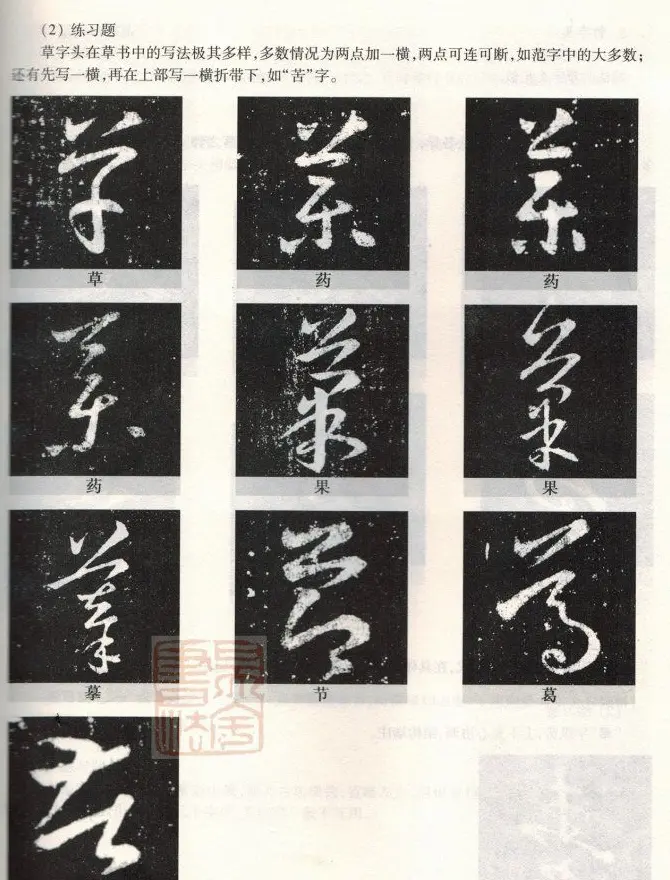 (2) 练习题
草字头在草书中的写法极其多样，多数情况为两点加一横，两点可连可断，如范字中的大多数；
还有先写一横，再在上部写一横折带下，如“苦”字。
草 药 药
药 果 果
摹 节 葛